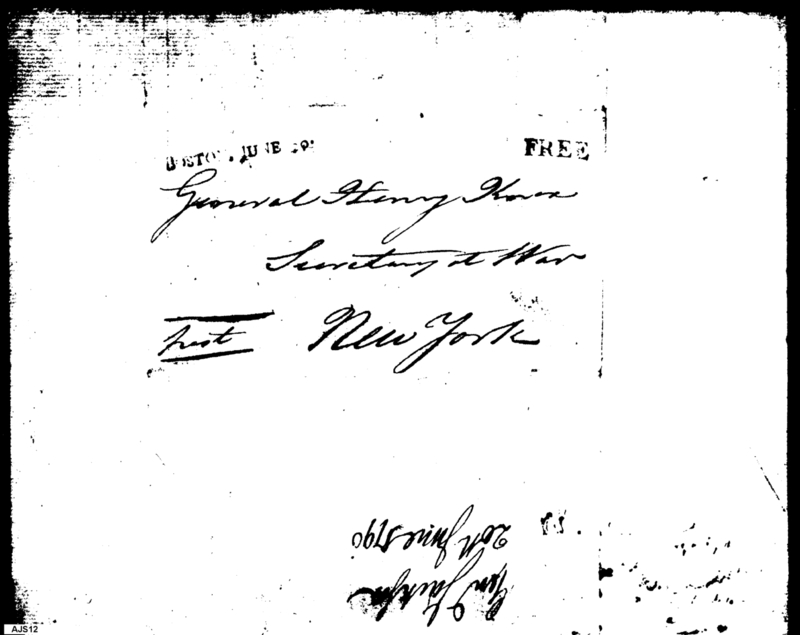 BOSTON, JUNE
FREE
General Henry Knox
Secretary at War
post
New York
Gen Jackson
20th June 1790
AJS12